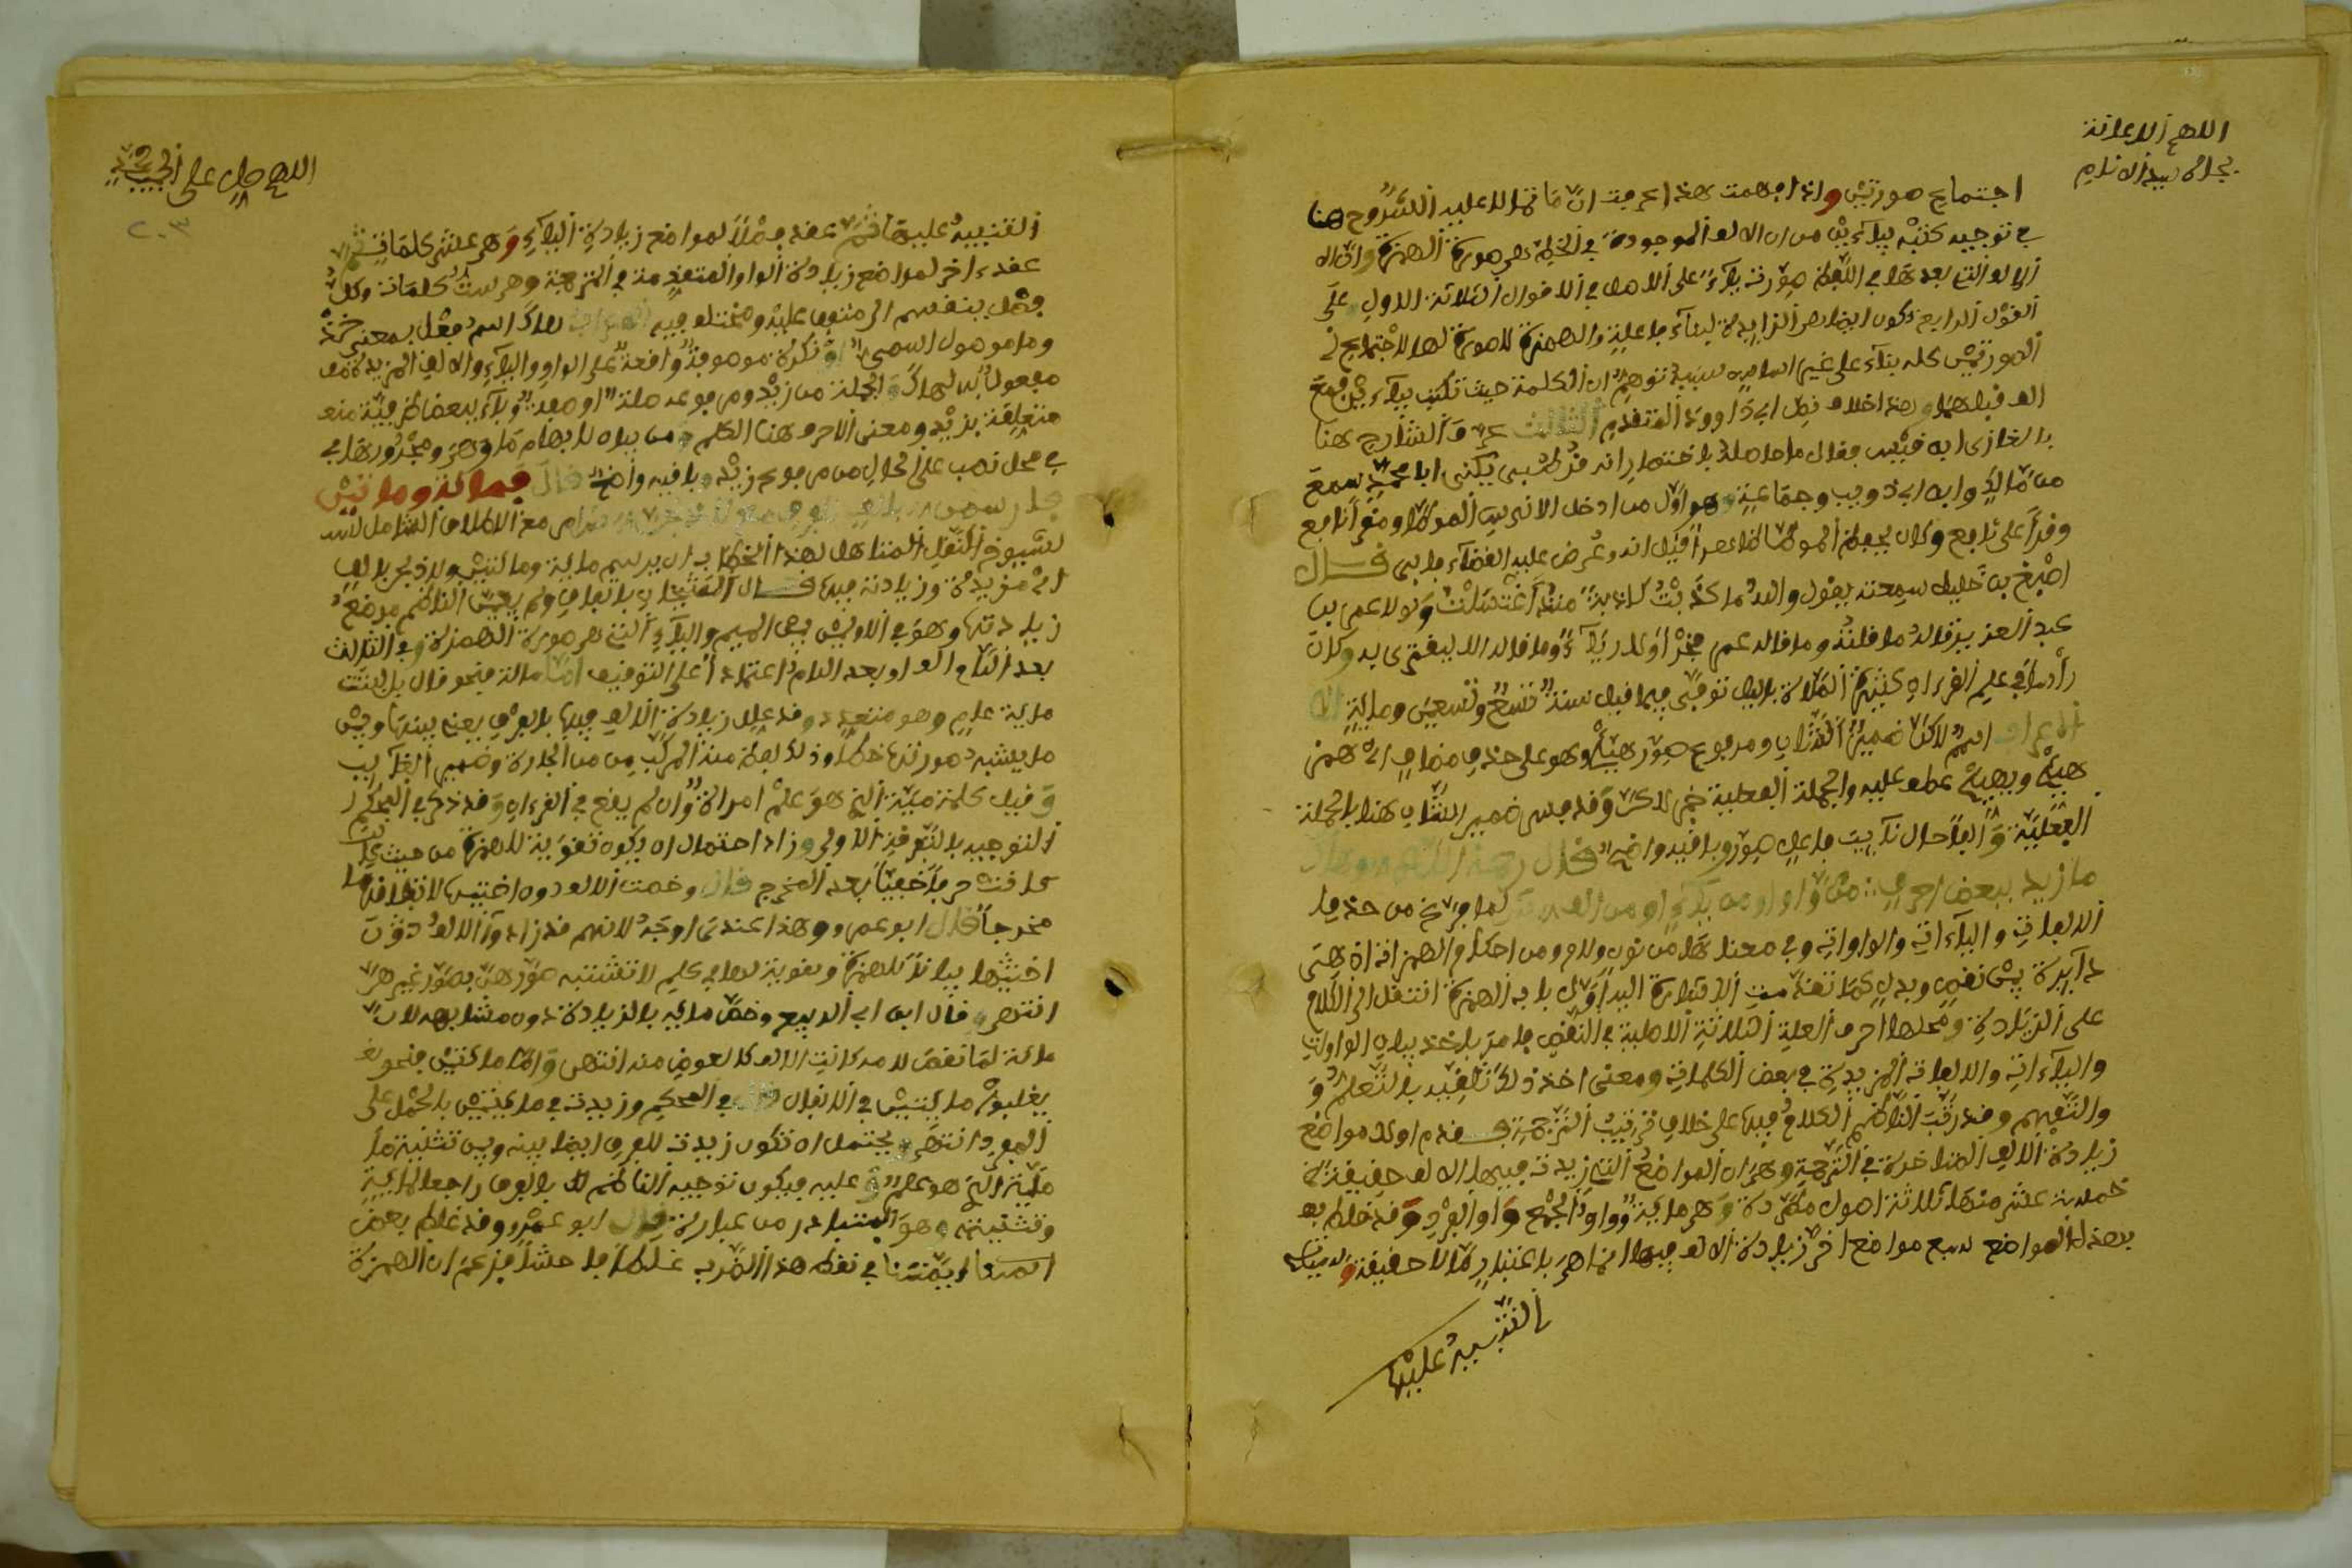 اللهم الاعانة
بجاه سيد الانام
اجتماع صورتين وإذا فهمت هذا عرفت أن ما قاله عليه الشروح هنا
في توجيه كتبه بياءين من أن الالف الموجودة في الخط هي صورة الهمزة وأن
الالف التي بعدها في اللفظ صورت ياء على الاصل في الاقوال الثلاثة الاول وعلى
القول الرابع تكون ايضا هي الزايدة لبناء فاعلية والهمزة لا صورة لها للاجتماع
الصورتين كله بناء على غير اساس سببه توهم ان الكلمة حيث تكتب بياءين فمع
الف قبلهما وهذا خلاف نص ابي داوود المتقدم الثالث عرف الشارح هنا
بالغازي ابن قيس فقال ما حاصله باختصار انه قرطبي يكنى ابا محمد سمع
من مالك وابن ابي ذويب وجماعة وهو اول من ادخل الاندلس الموطأ ومقرأ نافع
وقرأ على نافع وكان يحفظ الموطأ ظاهرا قيل انه وعرض عليه القضاء فابى قال
اصبغ بن خليل سمعته يقول والله ما كذبت كذبة منذ اغتسلت ولولا عمر بن
عبد العزيز قاله ما قلته وما قاله عمر فخرا ولا رياء وما قاله الا ليقتدى به وكان
رأسا في علم القرءان كثير الصلاة بالليل توفي فيما قيل سنة تسع وتسعين ومائة
الاعراب اسم لاكن ضمير الشان ومرفوع صور هيئ وهو على حذف مضاف اي همز
هيئ ويهيئ عطف عليه والجملة الفعلية خبر لاكن وقد فسر ضمير الشان هنا بالجملة
الفعلية والفا حال نايب فاعل صور وباقيه واضح قال رحمه الله وهاك
ما زيد ببعض احرف من واو او من ياء او من الف لما فرغ من حذف
الالفات والياءات والواوات وفي معناها من نون ولام ومن احكام الهمز اذ هي
دايرة بين نقص وبدل كما تقدمت الاشارة اليه اول باب الهمزة انتقل الى الكلام
على الزيادة ومحلها احرف العلة الثلاثة الاصلية في النقص فامر باخذ بيان الواوات
والياءات والالفات المزيدة في بعض الكلمات ومعنى اخذ ذلك تلقيه بالتعلم و
والتفهم وقد رتب الناظم الكلام فيها على خلاف ترتيب الترجمة فقدم اولا مواضع
زيادة الالف المتاخرة في الترجمة وهي ان المواضع التي زيدت فيها الالف حقيقة
خمسة عشر منها ثلاثة اصول مطردة وهي مائة وواو الجمع وواو الفرد وقد خلط
بهذه المواضع سبع مواضع اخر زيادة الالف فيها انما هي باعتبار ما لا حقيقة
التنبيه عليها
اللهم صل على الحبيب محمد
٢٠٣
التنبيه عليها ثم عقد فصلا لمواضع زيادة الياء وهي عشر كلمات ثم
عقد ءاخر لمواضع زيادة الواو المتقدمة في الترجمة وهي ست كلمات وكل
فصل ينقسم الى متفق عليه ومختلف فيه الاعراب هاك اسم فعل بمعنى خذ
وما موصول اسمي او نكرة موصوفة واقعة على الواو والياء والالف المزيدة
مفعولا به لهاك والجملة من زيد ومرفوعه صلة او صفة وباء ببعض ظرفية
متعلقة بزيد ومعنى الاحرف هنا الكلم ومن بيان لابهام ما وهي ومجرورها
في محل نصب على الحال من مرفوع زيد وباقيه واضح قال فمائة ومائتين
فارسمن بالف للفرق مع الاطلاق الشامل
لشيوخ النقل المتاهل لهذا الخطاب ان يرسم مائة ومائتين
اي مزيدة وزيادته فيها قال الشيخان باتفاق ولم يعين الناظم موضع
زيادتها وهو في الاولين بين الميم والياء التي هي صورة الهمزة وفي الثالث
بعد الواو بعد اللام اعتمادا على التوقيف اما مائة فنحو قال بل لبثت
مائة عام وهو متعدد وقد علل زيادة الالف فيها بالفرق يعني بينها وبين
ما يشبه صورتها خطا وذلك لفظ منه المركب من من الجارة وضمير الغايب
وقيل كلمة مية التي هو علم امراة وان لم يقع في القرءان وقد ذكر في المحكم
التوجيه بالتفرقة الاولى وزاد احتمال ان يكون تقوية للهمزة من حيث
كانت حرفا خفيا بعيد المخرج قال وخصت الالف دون اختيها لاتفاقهما
مخرجا قال ابو عمرو وهذا عندي اوجه لانهم قد زادوا الالف دون
اختيها بيانا للهمزة وتقوية لها في كلم لا تشتبه صورهن بصور غيرهن
انتهى قال ابن ابي الربيع وخص مائة بالزيادة دون مشابهه لان
مائة لما نقص لامه كانت الالف كالعوض منه انتهى واما مائتين فنحو
يغلبوا مائتين في الانفال قال في المحكم وزيدت في مائتين بالحمل على
المفرد انتهى ويحتمل ان تكون زيدت للفرق ايضا بينه وبين تثنية
مية التي هو علم وعليه فيكون توجيه الناظم بالفرق راجعا لمائة
وتثنيته وهو المتبادر من عبارة قال ابو عمرو وقد غلط بعض
ائمتنا في نقط هذا الضرب غلطا فاحشا فزعم ان الهمزة